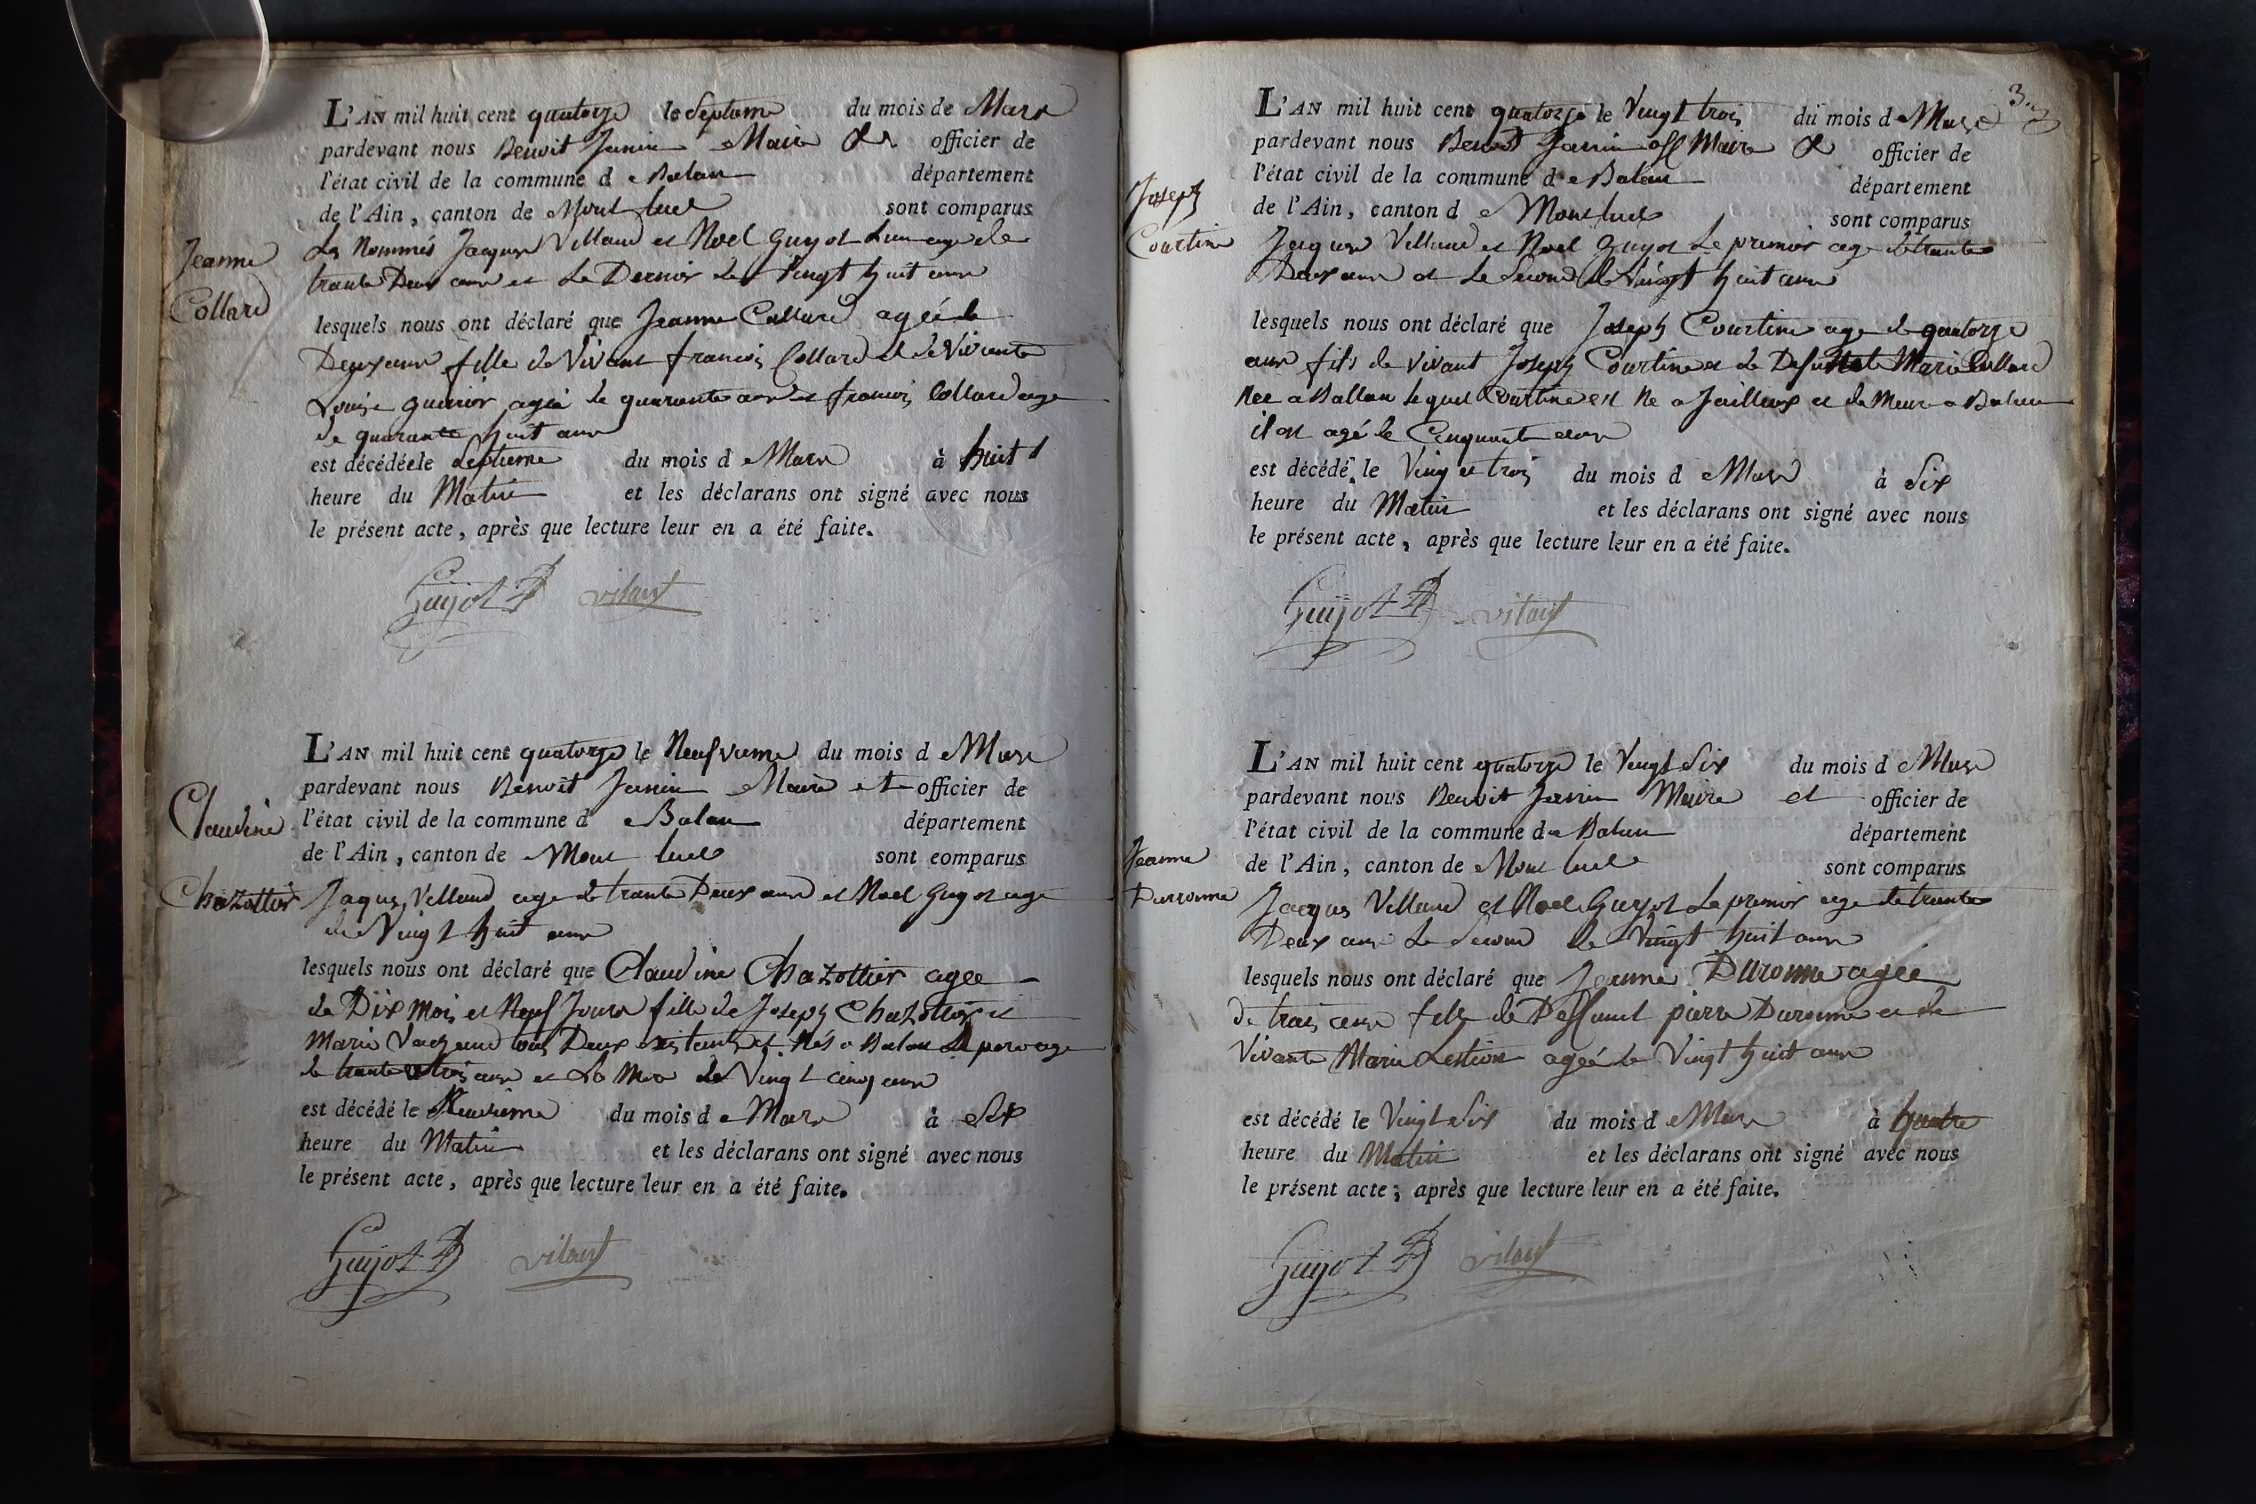 L'AN mil huit cent quatorze le Septieme du mois de Mars
pardevant nous Benoit Janin Maire & officier de
l'état civil de la commune d e Balan département
de l'Ain, canton de Mont luel sont comparus
Les Nommés Jacques Villaud et Noel Guyot L'un age de
trante Deux ans et Le Dernier de Vingt huit ans
Jeanne
Collard
lesquels nous ont déclaré que Jeanne Collard agée de
Deux ans fille de Vivant francois Collard et de Vivante
Louise agée de quarante ans et francois Collard age
de quarante huit ans
est décédée le Septieme du mois d e Mars à huit
heure du Matin et les déclarans ont signé avec nous
le présent acte, après que lecture leur en a été faite.
Guyot vilaud
L'AN mil huit cent quatorze le Neufvieme du mois d e Mars
pardevant nous Benoit Janin Maire et officier de
l'état civil de la commune d e Balan département
de l'Ain, canton de Mont luel sont comparus
Claudine
Chazottier
Jaques Villaud age de trante Deux ans et Noel Guyot age
de Vingt huit ans
lesquels nous ont déclaré que Claudine Chazottier agee
de Dix Mois et Neuf Jours fille de Joseph Chazottier et
Marie tous Deux et Nés a Balan Le pere age
de trante trois ans et La Mere de Vingt cinq ans
est décédé le Neuvieme du mois d e Mars à Six
heure du Matin et les déclarans ont signé avec nous
le présent acte, après que lecture leur en a été faite.
Guyot vilaud
3.
L'AN mil huit cent quatorze le Vingt trois du mois d e Mars
pardevant nous Benoit Janin Maire & officier de
l'état civil de la commune d e Balan département
de l'Ain, canton d e Mont luel sont comparus
Joseph
Courtine
Jacques Villaud et Noel Guyot Le premier age de trante
Deux ans et Le Second de Vingt huit ans
lesquels nous ont déclaré que Joseph Courtine age de quatorze
ans fils de Vivant Joseph Courtine et de Defunte Marie Collard
Nee a Ballan lequel Courtine est Ne a Jailleux et de Meure a Balan
il est agé de Cinquante ans
est décédé le Ving et trois du mois d e Mars à Six
heure du Matin et les déclarans ont signé avec nous
le présent acte, après que lecture leur en a été faite.
Guyot vilaud
L'AN mil huit cent quatorze le Vingt Six du mois d e Mars
pardevant nous Benoit Janin Maire et officier de
l'état civil de la commune de Balan département
de l'Ain, canton de Mont luel sont comparus
Jeanne
Duronne
Jacques Villaud et Noel Guyot Le premier age de trante
Deux ans Le Second de Vingt huit ans
lesquels nous ont déclaré que Jeanne Duronne agée
de trois ans fille de Deffunt pierre Duronne et de
Vivante Marie agée de Vingt huit ans
est décédé le Vingt Six du mois d e Mars à quatre
heure du Matin et les déclarans ont signé avec nous
le présent acte, après que lecture leur en a été faite.
Guyot vilaud